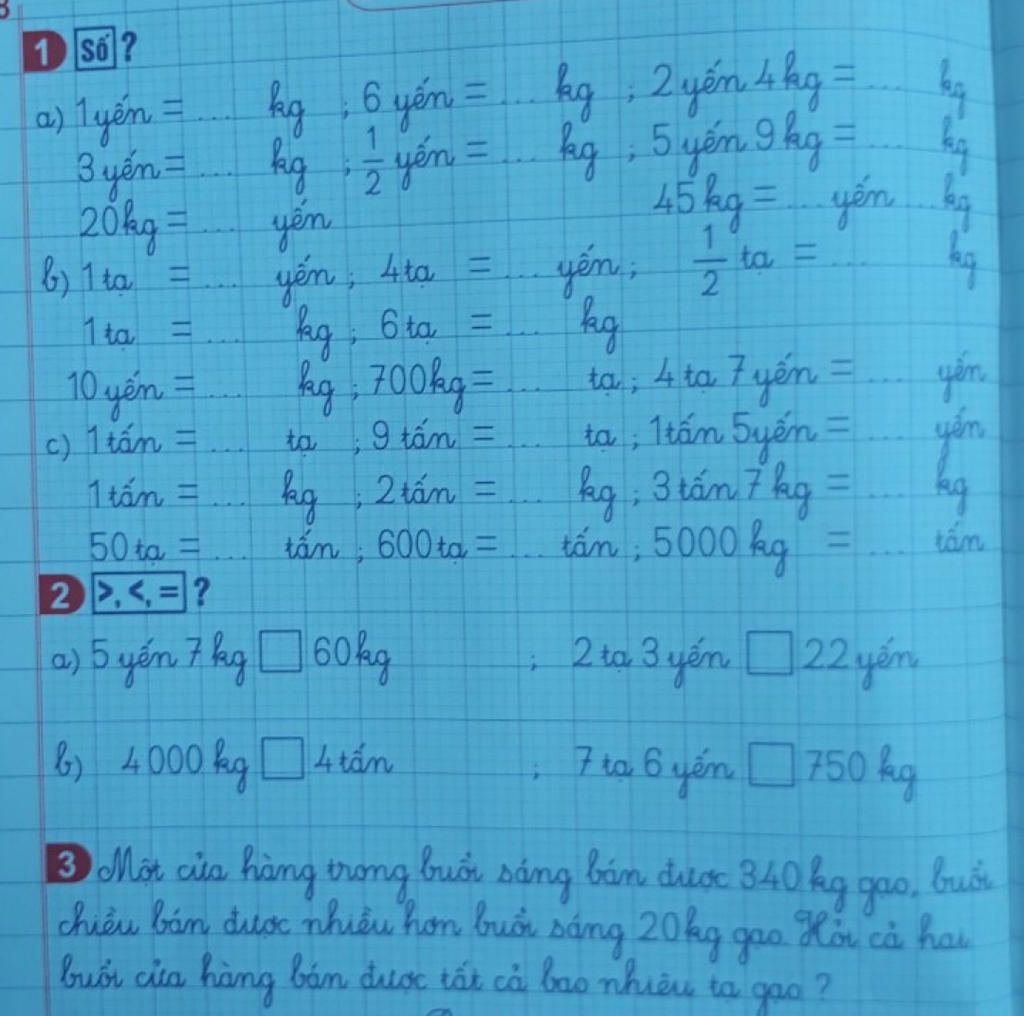 1 Số ?
a) 1 yến = ... kg ; 6 yến = ... kg ; 2 yến 4 kg = ... kg
3 yến = ... kg ; 1/2 yến = ... kg ; 5 yến 9 kg = ... kg
20 kg = ... yến 45 kg = ... yến ... kg
b) 1 tạ = ... yến ; 4 tạ = ... yến ; 1/2 tạ = ... kg
1 tạ = ... kg ; 6 tạ = ... kg
10 yến = ... kg ; 700 kg = ... tạ ; 4 tạ 7 yến = ... yến
c) 1 tấn = ... tạ ; 9 tấn = ... tạ ; 1 tấn 5 yến = ... yến
1 tấn = ... kg ; 2 tấn = ... kg ; 3 tấn 7 kg = ... kg
50 tạ = ... tấn ; 600 tạ = ... tấn ; 5000 kg = ... tấn
2 >, <, = ?
a) 5 yến 7 kg □ 60 kg ; 2 tạ 3 yến □ 22 yến
b) 4000 kg □ 4 tấn ; 7 tạ 6 yến □ 750 kg
3 Một cửa hàng trong buổi sáng bán được 340 kg gạo, buổi
chiều bán được nhiều hơn buổi sáng 20 kg gạo. Hỏi cả hai
buổi cửa hàng bán được tất cả bao nhiêu tạ gạo ?